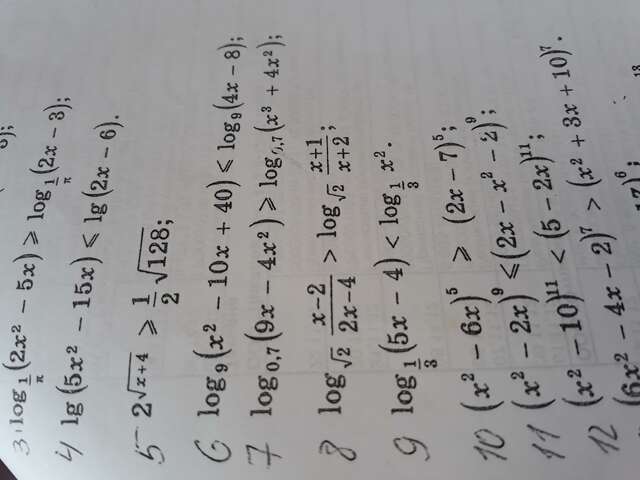 3. log_{1/π}(2x² − 5x) ⩾ log_{1/π}(2x − 3);
4 lg (5x² − 15x) ⩽ lg (2x − 6).
5 2^{√(x+4)} ⩾ 1/2 √128;
6 log₉(x² − 10x + 40) ⩽ log₉(4x − 8);
7 log₀,₇(9x − 4x²) ⩾ log₀,₇(x³ + 4x²);
8 log_{√2} (x−2)/(2x−4) > log_{√2} (x+1)/(x+2);
9 log_{1/3}(5x − 4) < log_{1/3} x².
10 (x² − 6x)⁵ ⩾ (2x − 7)⁵;
11 (x² − 2x)⁹ ⩽ (2x − x² − 2)⁹;
(x² − 10)¹¹ < (5 − 2x)¹¹;
12 (6x² − 4x − 2)⁷ > (x² + 3x + 10)⁷.